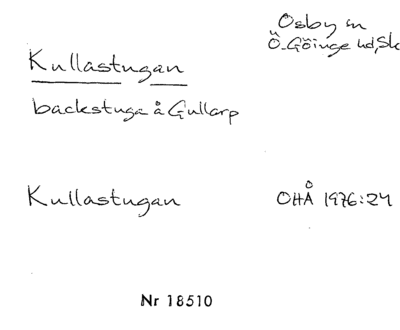 Osby sn
Ö. Göinge hd, Sk
Kullastugan
backstuga å Gullarp
Kullastugan OHÅ 1976:24
Nr 18510